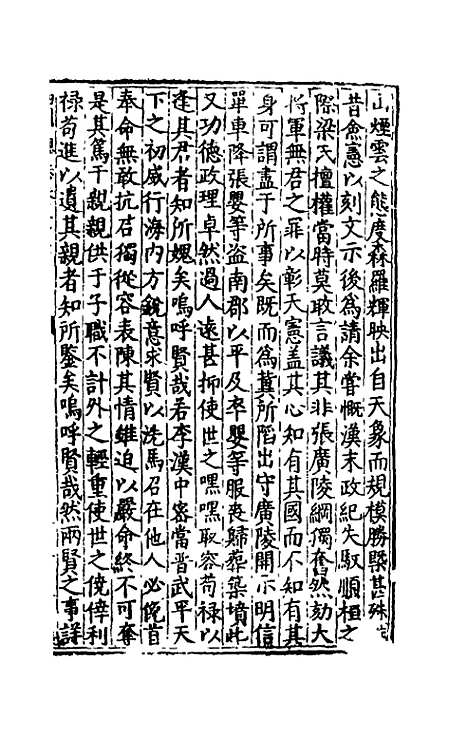 山煙雲之態度森羅輝映出自天象而規模勝槩甚殊
昔僉憲以刻文示後為請余嘗慨漢末政紀失馭順桓之
際梁氏擅權當時莫敢言議其非張廣陵綱獨奮然劾大
將軍無君之罪以彰天憲盖其心知有其國而不知有其
身可謂盡于所事矣既而為冀所陷出守廣陵開示明信
單車降張嬰等盗南郡以平及卒嬰等服喪歸葬築墳此
又功德政理卓然過人逺甚抑使世之嘿嘿取容苟禄以
逢其君者知所媿矣嗚呼賢哉若李漢中密當晋武平天
下之初威行海内方鋭意求賢以洗馬召在他人必俛首
奉命無敢抗召獨從容表陳其情雖迫以嚴命終不可奪
是其篤于親親供于子職不計外之輕重使世之僥倖利
禄苟進以遺其親者知所鑒矣嗚呼賢哉然兩賢之事詳